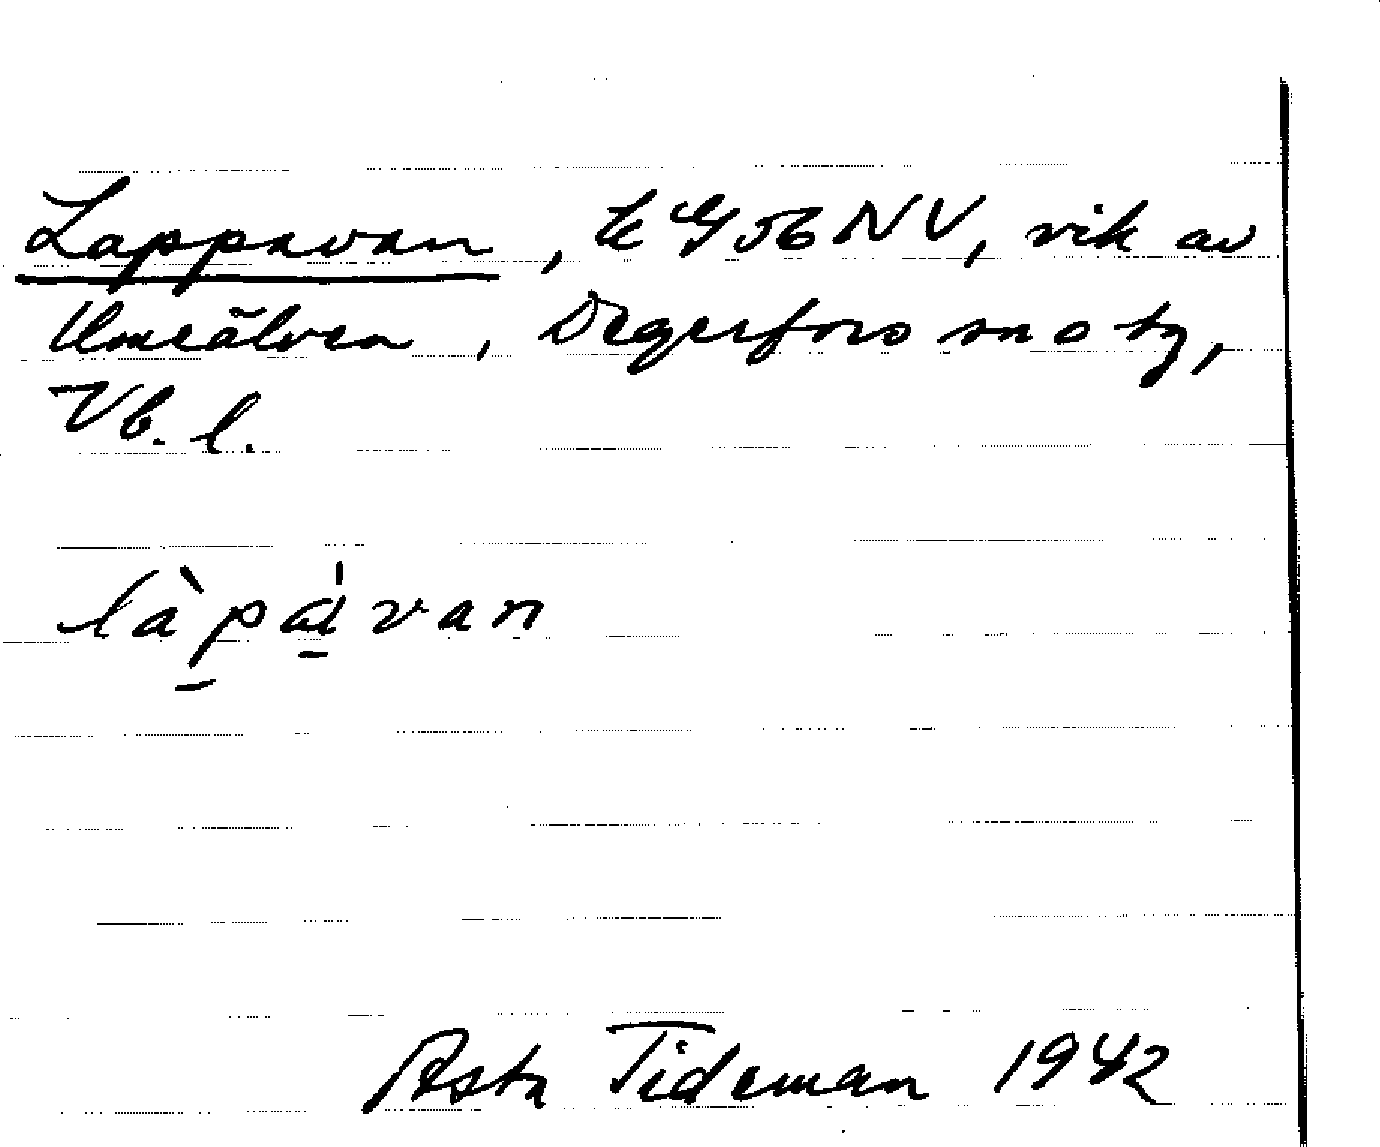 Lappavan, k G 56 NV, vik av
Umeälven, Degerfors sn o tg,
Vb. l.
làpa̠ván
Asta Tideman 1942